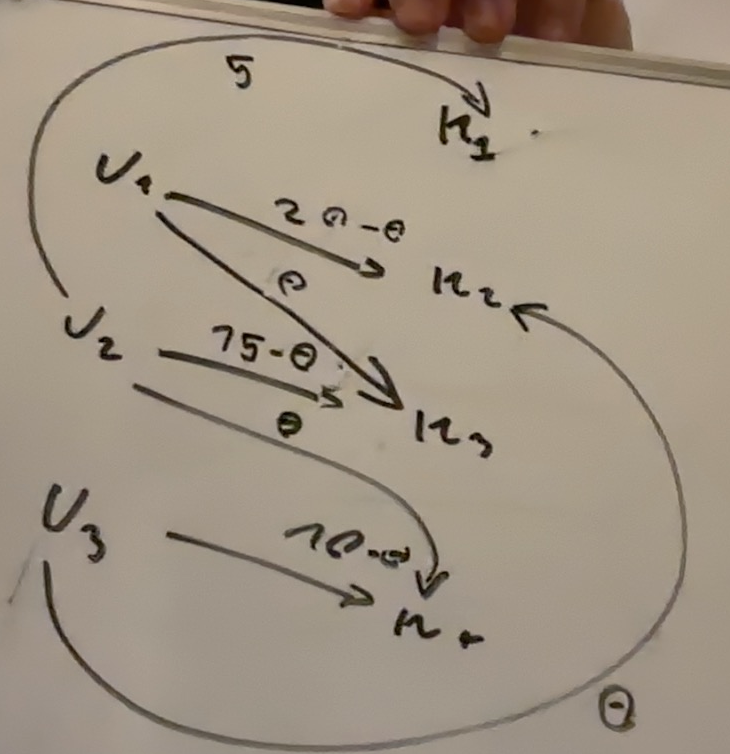 5
K1
U1
20-θ
K2
θ
U2
15-θ
θ
K3
U3
10-θ
K4
θ